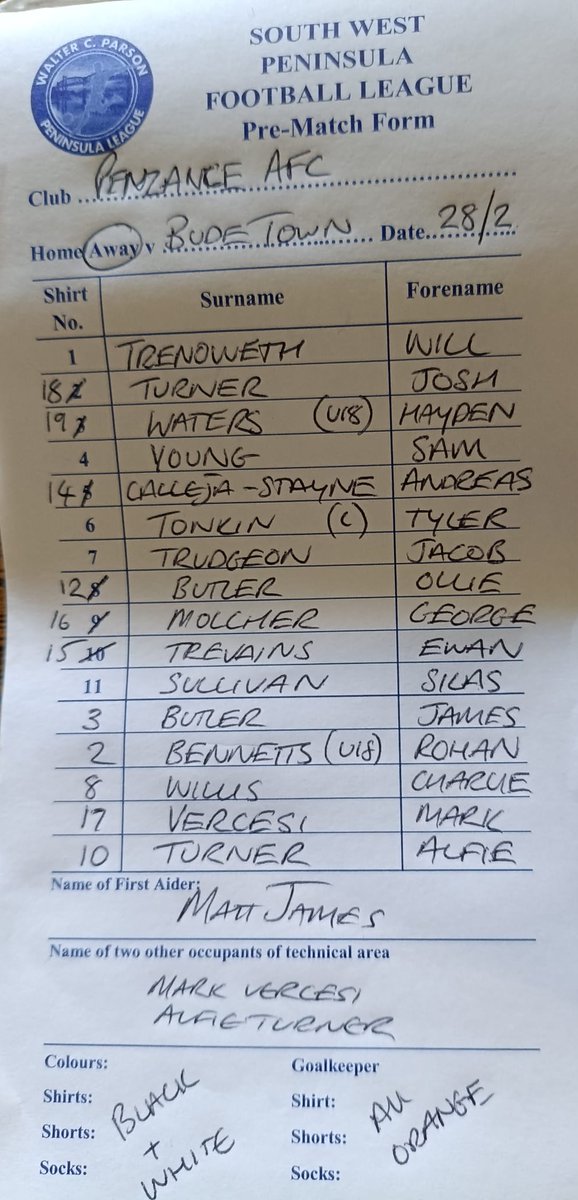 WALTER C. PARSON
PENINSULA LEAGUE
SOUTH WEST
PENINSULA
FOOTBALL LEAGUE
Pre-Match Form
Club PENZANCE AFC
Home/Away v BUDE TOWN Date 28/2
Shirt No. Surname Forename
1 TRENOWETH WILL
18 2 TURNER JOSH
19 3 WATERS (U18) HAYDEN
4 YOUNG SAM
14 5 CALLEJA-STAYNE ANDREAS
6 TONKIN (C) TYLER
7 TRUDGEON JACOB
12 8 BUTLER OLLIE
16 9 MOLCHER GEORGE
15 10 TREVAINS EWAN
11 SULLIVAN SILAS
3 BUTLER JAMES
2 BENNETTS (U18) ROHAN
8 WILLIS CHARLIE
17 VERCESI MARK
10 TURNER ALFIE
Name of First Aider:
MATT JAMES
Name of two other occupants of technical area
MARK VERCESI
ALFIE TURNER
Colours: Goalkeeper
Shirts: BLACK Shirt: ALL
Shorts: + Shorts: ORANGE
Socks: WHITE Socks: